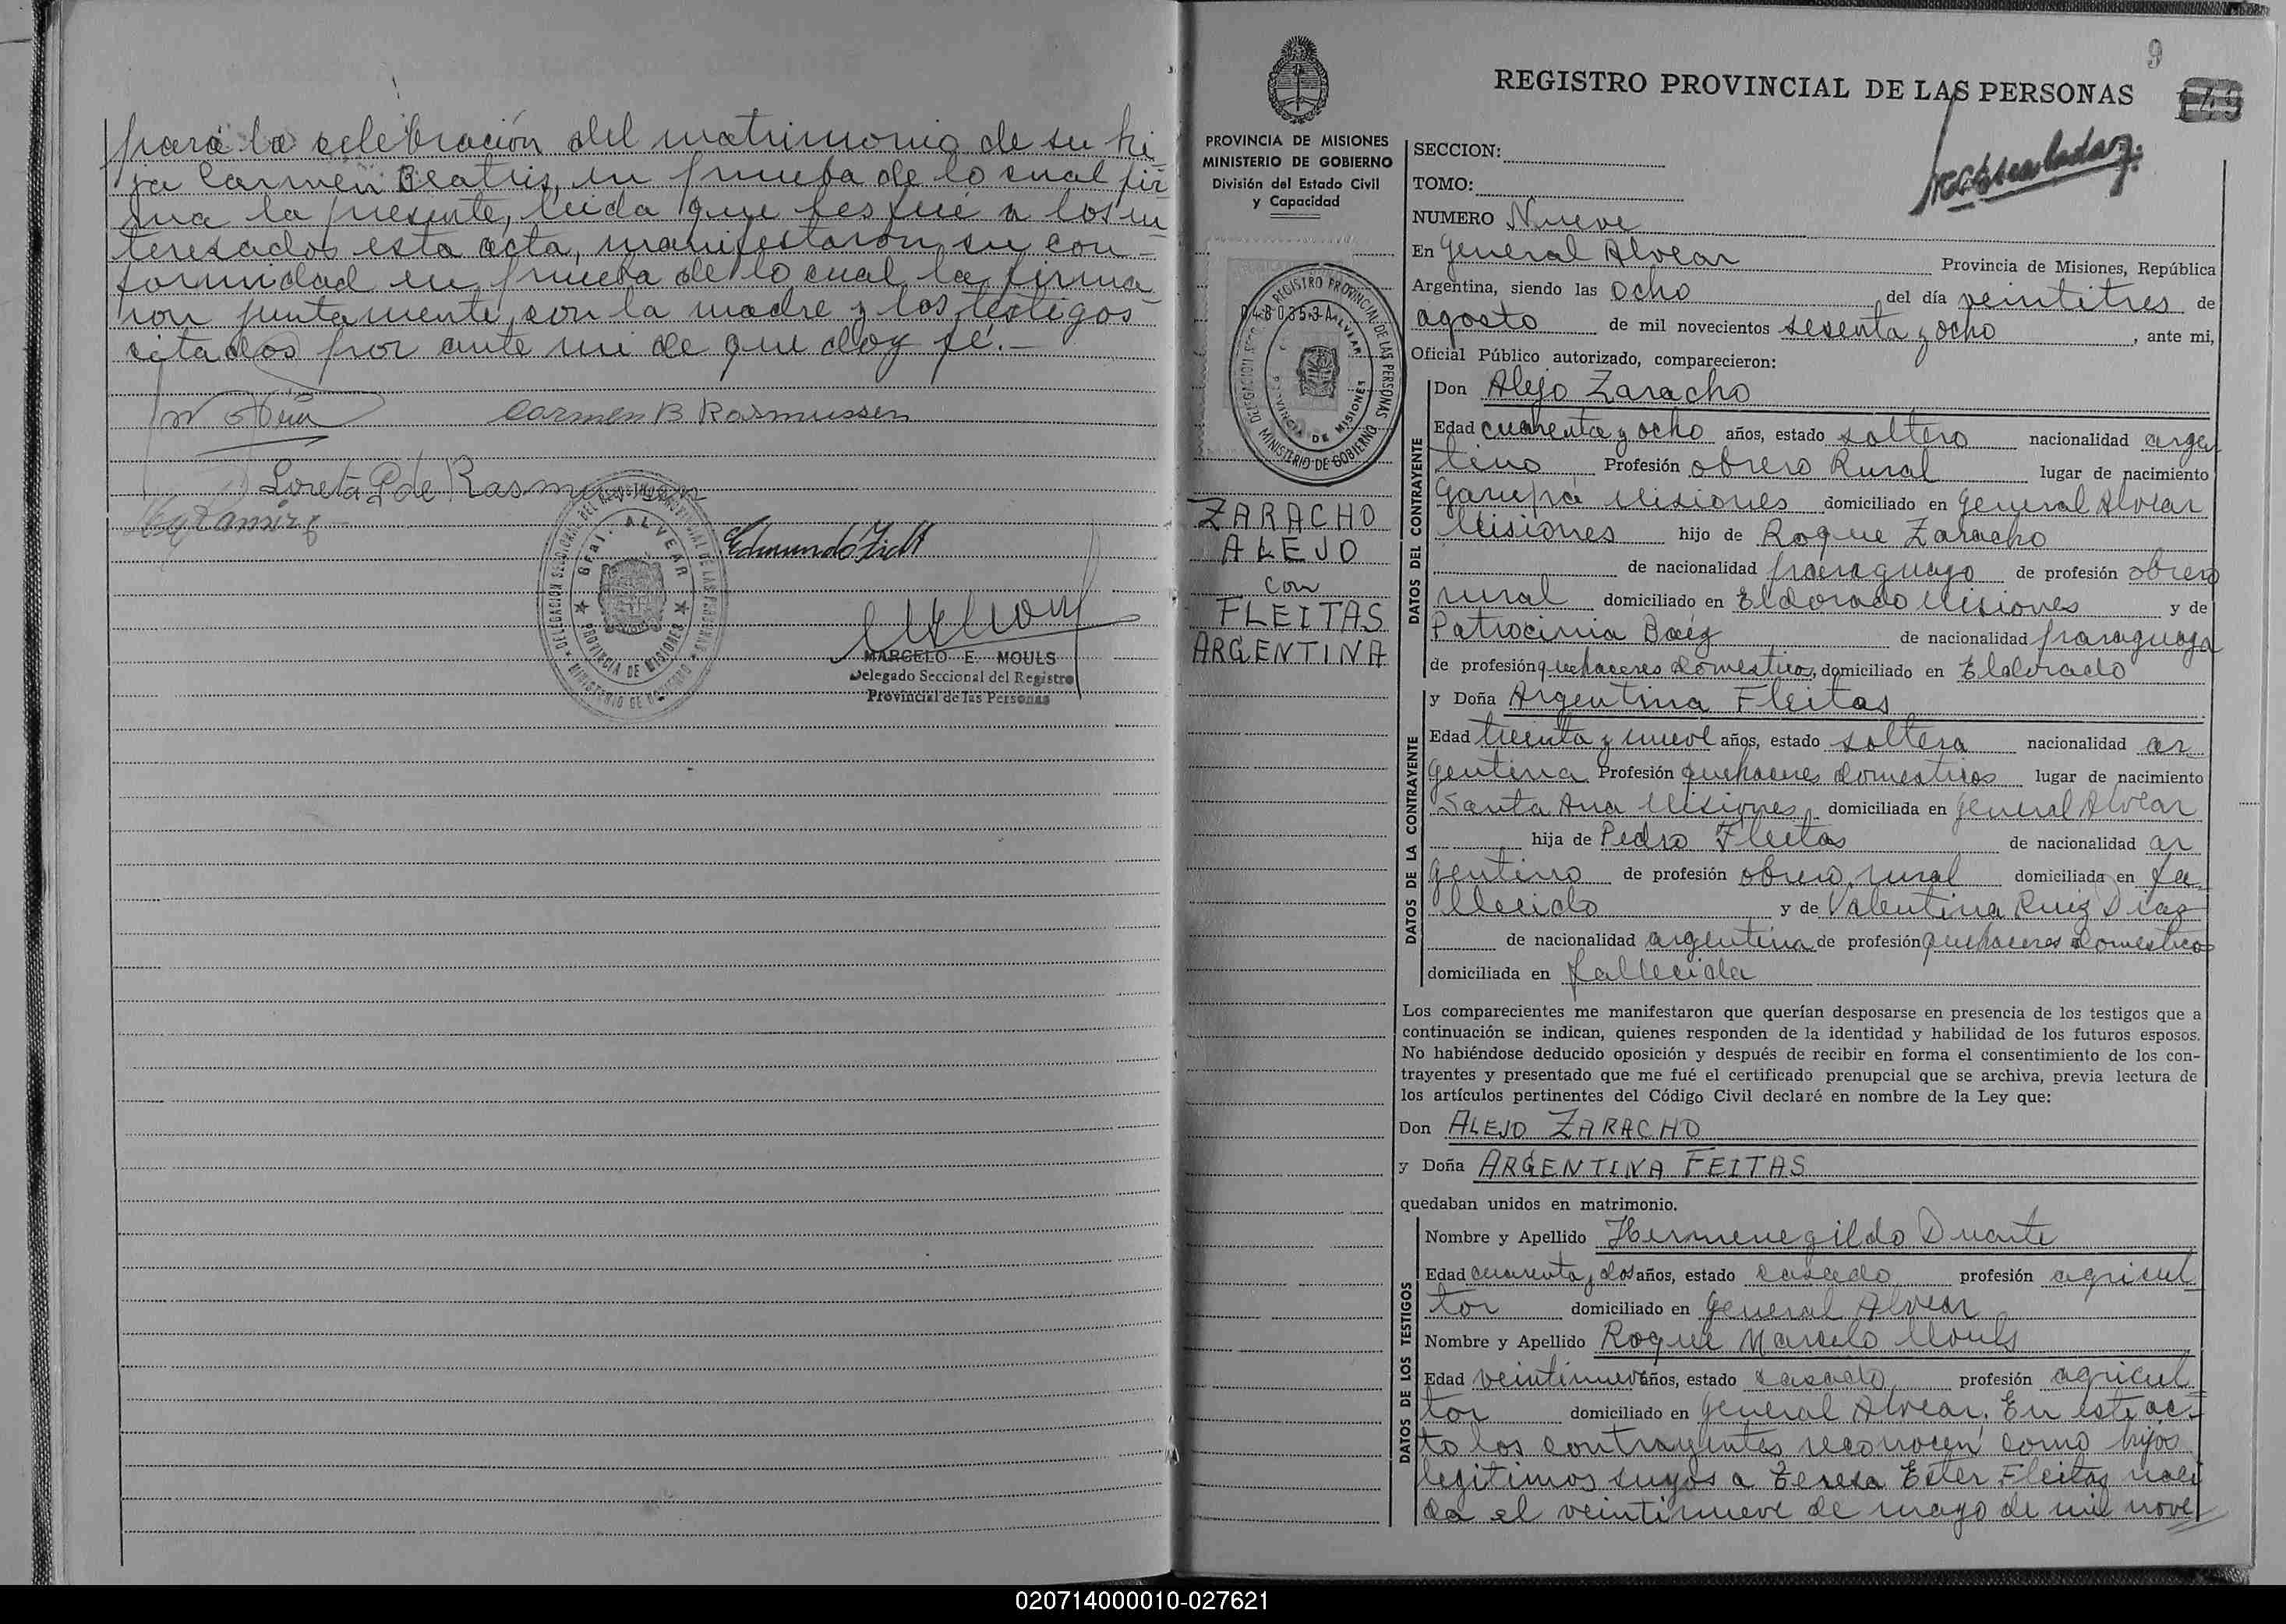 para la celebración del matrimonio de su hi-
ja Carmen Beatriz, en prueba de lo cual fir-
ma la presente, leida que les fué a los in-
teresados esta acta, manifestaron su con-
formidad en prueba de lo cual la firma-
ron juntamente con la madre y los testigos
citados por ante mi de que doy fé.-
Carmen B Rasmussen
Loreta P de Rasmussen
Edmundo
DELEGACION SECCIONAL DEL REGISTRO PROVINCIAL DE LAS PERSONAS
Gral. ALVEAR
PROVINCIA DE MISIONES
MINISTERIO DE GOBIERNO
MARCELO E. MOULS
Delegado Seccional del Registro
Provincial de las Personas
9
REGISTRO PROVINCIAL DE LAS PERSONAS
149
PROVINCIA DE MISIONES
MINISTERIO DE GOBIERNO
División del Estado Civil
y Capacidad
0480353A
REGISTRO PROVINCIAL DE LAS PERSONAS
ALVEAR
PROVINCIA DE MISIONES
MINISTERIO DE GOBIERNO
ZARACHO
ALEJO
con
FLEITAS
ARGENTINA
SECCION:
TOMO:
NUMERO Nueve
En General Alvear Provincia de Misiones, República
Argentina, siendo las Ocho del día veintitres de
agosto de mil novecientos sesenta y ocho, ante mi,
Oficial Público autorizado, comparecieron:
DATOS DEL CONTRAYENTE
Don Alejo Zaracho
Edad cuarenta y ocho años, estado soltero nacionalidad argen
tino Profesión obrero Rural lugar de nacimiento
Garupá Misiones domiciliado en General Alvear
Misiones hijo de Roque Zaracho
de nacionalidad paraguayo de profesión obrero
rural domiciliado en Eldorado Misiones y de
Patrocinia Baez de nacionalidad paraguaya
de profesión quehaceres domesticos, domiciliado en Eldorado
DATOS DE LA CONTRAYENTE
y Doña Argentina Fleitas
Edad treinta y nueve años, estado soltera nacionalidad ar
gentina Profesión quehaceres domesticos lugar de nacimiento
Santa Ana Misiones, domiciliada en General Alvear
hija de Pedro Fleitas de nacionalidad ar
gentino de profesión obrero rural domiciliada en fa
llecido y de Valentina Ruiz Diaz
de nacionalidad argentina de profesión quehaceres domesticos
domiciliada en fallecida
Los comparecientes me manifestaron que querían desposarse en presencia de los testigos que a
continuación se indican, quienes responden de la identidad y habilidad de los futuros esposos.
No habiéndose deducido oposición y después de recibir en forma el consentimiento de los con-
trayentes y presentado que me fué el certificado prenupcial que se archiva, previa lectura de
los artículos pertinentes del Código Civil declaré en nombre de la Ley que:
Don ALEJO ZARACHO
y Doña ARGENTINA FEITAS
quedaban unidos en matrimonio.
DATOS DE LOS TESTIGOS
Nombre y Apellido Hermenegildo Duarte
Edad cuarenta y dos años, estado casado profesión agricul
tor domiciliado en General Alvear
Nombre y Apellido Roque Marcelo Mouls
Edad veintinueve años, estado casado profesión agricul
tor domiciliado en General Alvear. En este ac-
to los contrayentes reconocen como hijos
legitimos suyos a Teresa Ester Fleitas naci
da el veintinueve de mayo de mil nove
020714000010-027621